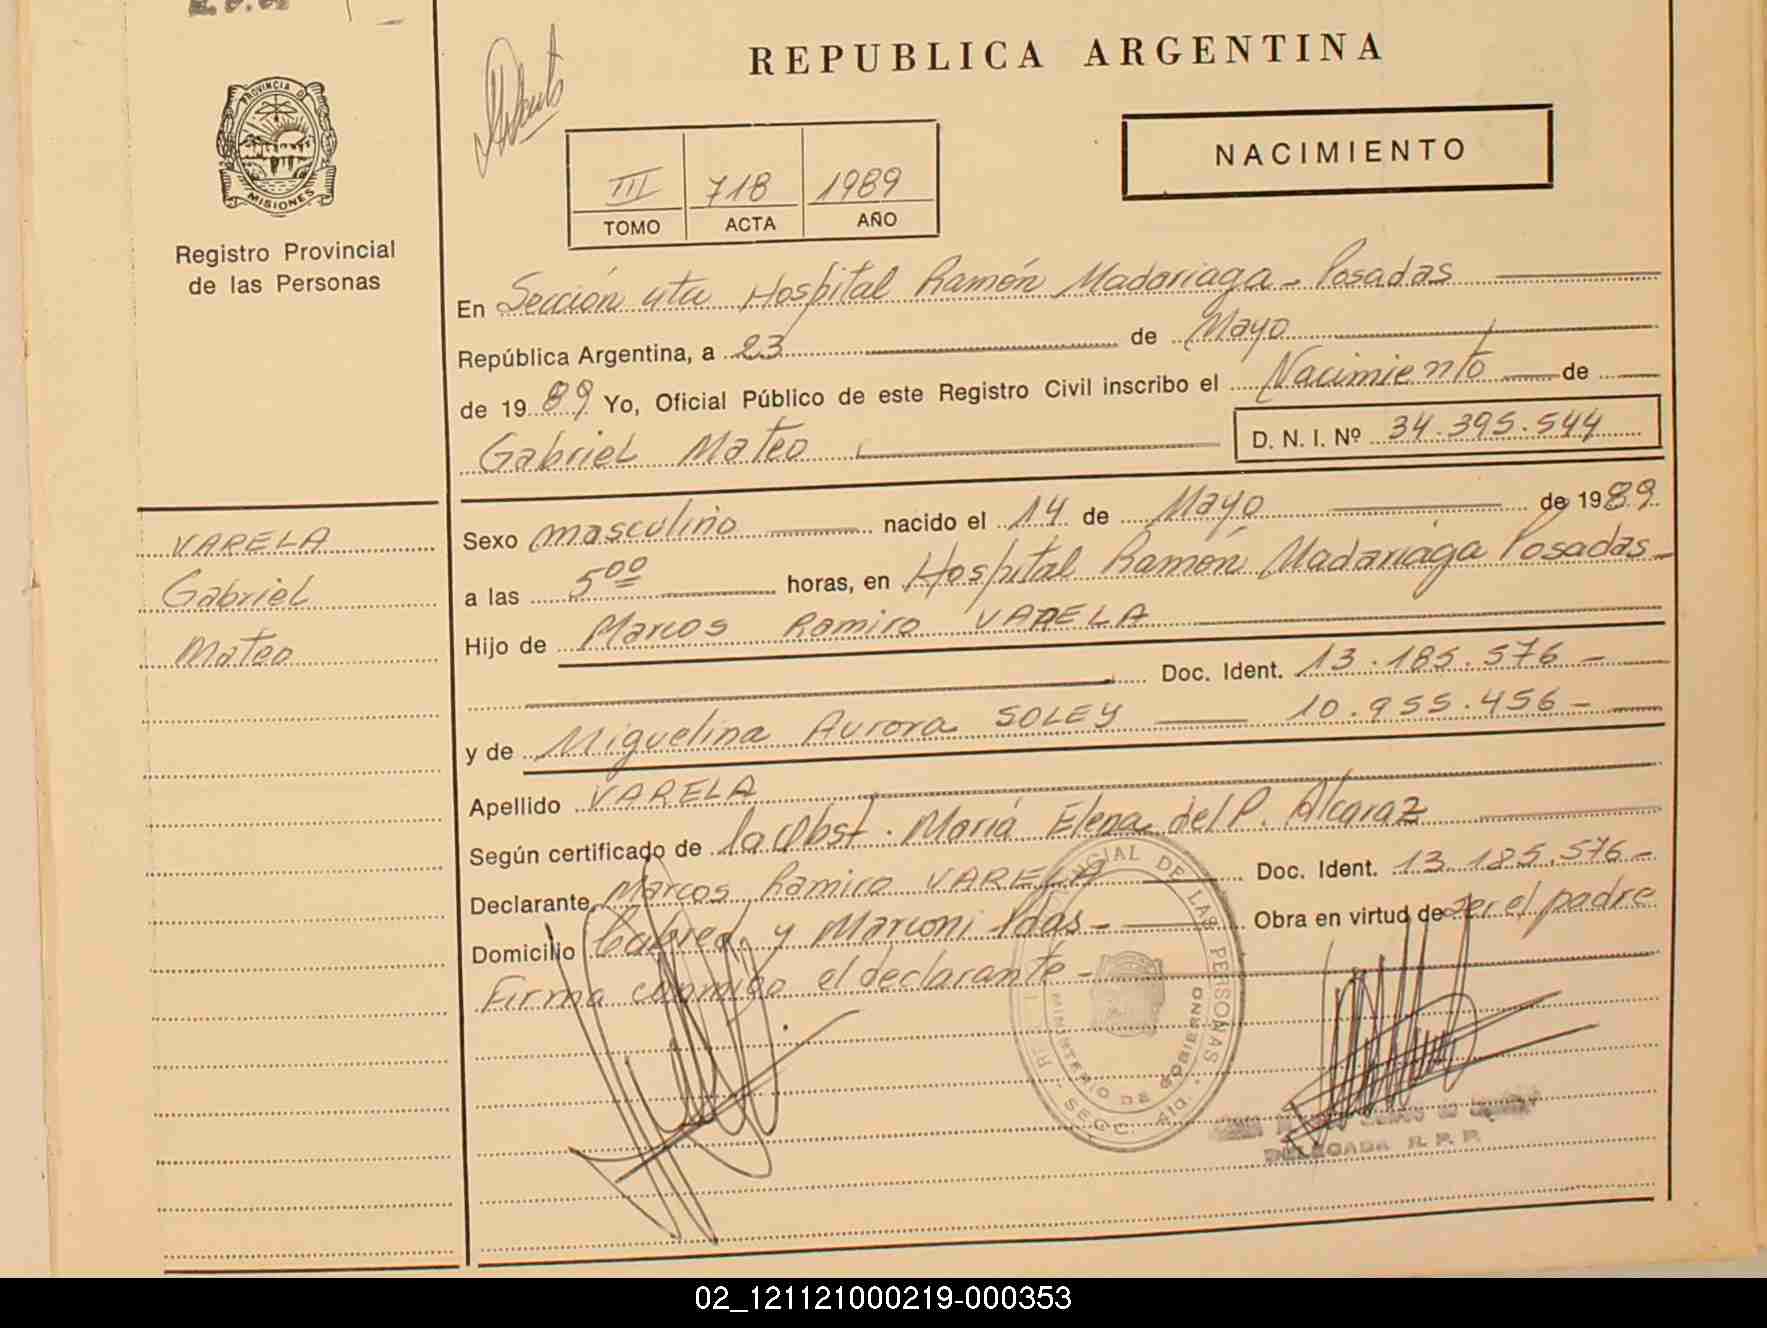 REPUBLICA ARGENTINA
PROVINCIA D
MISIONES
Registro Provincial
de las Personas
NACIMIENTO
III 718 1989
TOMO ACTA AÑO
En Sección 4ta Hospital Ramón Madariaga - Posadas
República Argentina, a 23 de Mayo
de 1989 Yo, Oficial Público de este Registro Civil inscribo el Nacimiento de
Gabriel Mateo D. N. I. Nº 34.395.544
VARELA
Gabriel
Mateo
Sexo masculino nacido el 14 de Mayo de 1989
a las 5 00 horas, en Hospital Ramón Madariaga Posadas-
Hijo de Marcos Ramiro VARELA
Doc. Ident. 13.185.576 -
y de Miguelina Aurora SOLEY 10.955.456 -
Apellido VARELA
Según certificado de la Obst. María Elena del P. Alcaraz
Declarante Marcos Ramiro VARELA Doc. Ident. 13.185.576 -
Domicilio y Marconi Pdas - Obra en virtud de ser el padre
Firma conmigo el declarante -
DE LAS PERSONAS
MINISTERIO DE GOBIERNO
SECC.
DELEGADA R. P. P.
02_121121000219-000353